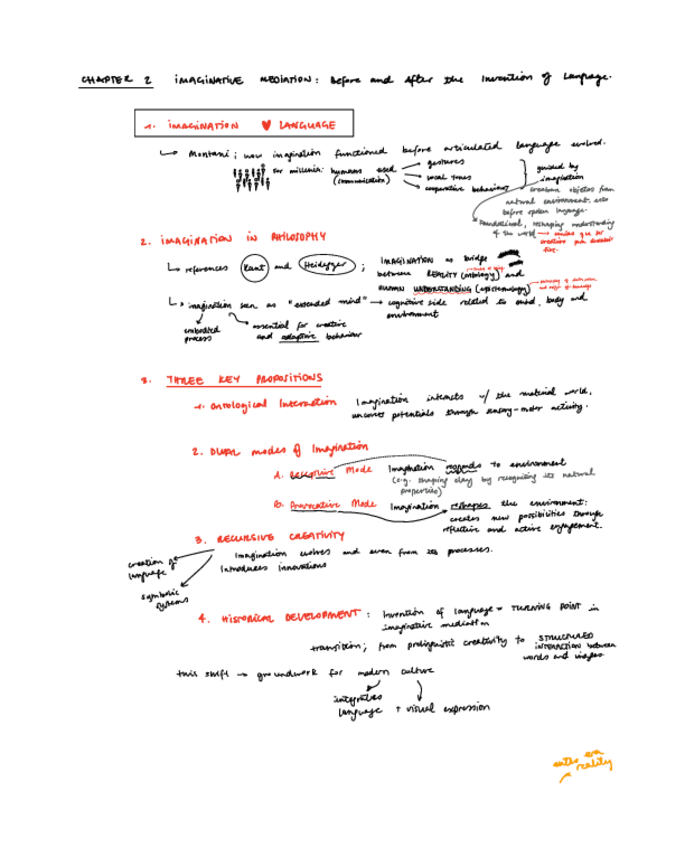 CHAPTER 2 IMAGINATIVE MEDIATION: Before and After the Invention of Language.
1. IMAGINATION ♥ LANGUAGE
↳ Montani; how imagination functioned before articulated language evolved.
For millenia: humans used (communication)
gestures
vocal tones
cooperative behaviours
guided by imagination
creature objects from natural environment
before spoken language.
Foundational, reshaping understanding of the world →
2. IMAGINATION IN PHILOSOPHY
↳ references Kant and Heidegger; IMAGINATION as bridge
between REALITY (ontology) and
HUMAN UNDERSTANDING (epistemology)
↳ imagination seen as "extended mind" → cognitive side related to mind, body and
environment
embodied process
essential for creative
and adaptive behaviour
3. THREE KEY PROPOSITIONS
1. Ontological Interaction Imagination interacts w/ the material world,
uncovers potentials through sensory-motor activity.
2. DUAL modes of Imagination
A. Receptive Mode Imagination responds to environment
(e.g. shaping clay by recognizing its natural
properties)
B. Provocative Mode Imagination reshapes the environment:
creates new possibilities through
reflective and active engagement.
3. RECURSIVE CREATIVITY
Imagination evolves and even from its processes.
Introduces innovations
creation of language
symbolic systems
4. HISTORICAL DEVELOPMENT: Invention of language = TURNING POINT in
imaginative mediation
transition; from prelinguistic creativity to STRUCTURED
INTERACTION between
words and images
this shift → groundwork for modern culture
integrates
language + visual expression
reality